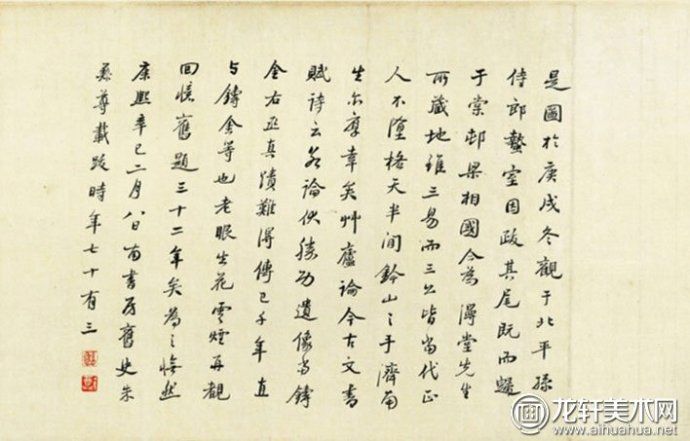 是圖於庚戌冬觀于北平孫
侍郎蟄室因跋其尾既而歸
于棠邨梁相國今為漫堂先生
所藏地雖三易而三公皆當代正
人不墮格天半間鈐山之手濟南
生亦厚幸矣艸廬論今古文書
賦詩云若論伏勝功遺像當鑄
金右丞真蹟難得傳已千年直
與鑄金等也老眼生花雲煙再覩
回憶舊題三十二年矣為之憮然
康熙辛巳二月八日南書房舊史朱
彝尊載跋時年七十有三
龙轩美术网
www.aihuahua.net